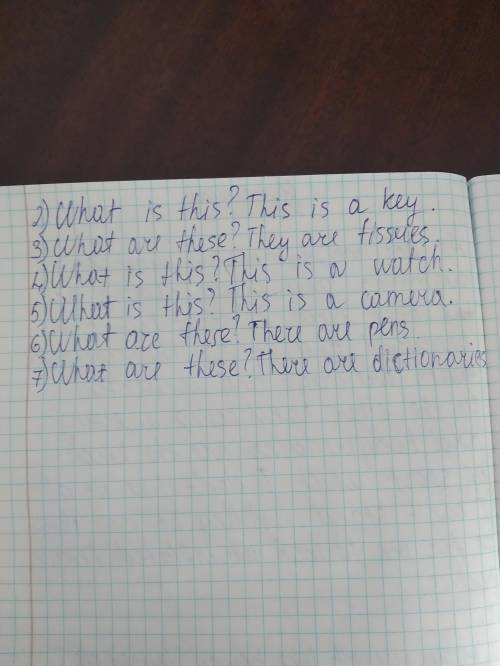 2) What is this? This is a key.
3) What are these? They are tissues.
4) What is this? This is a watch.
5) What is this? This is a camera.
6) What are there? There are pens
7) What are these? There are dictionaries